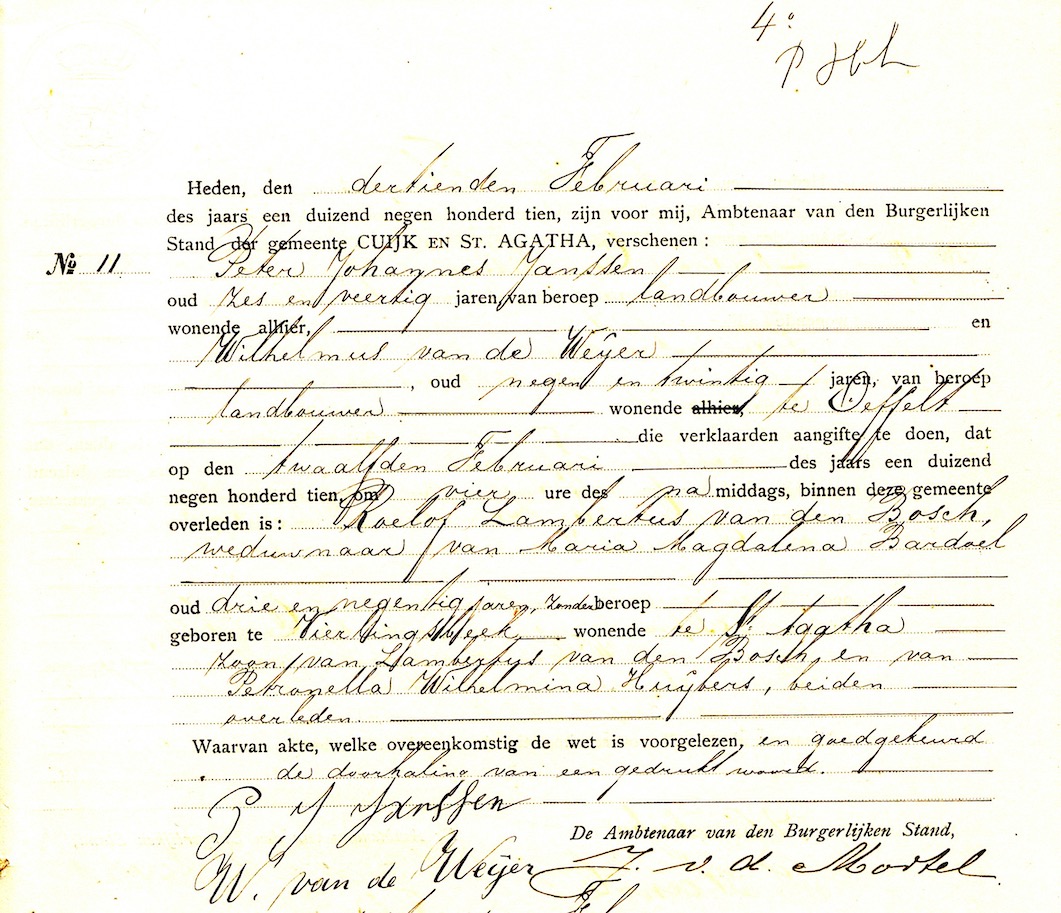 4°
Heden, den dertienden Februari
des jaars een duizend negen honderd tien, zijn voor mij, Ambtenaar van den Burgerlijken
Stand der gemeente CUIJK EN ST. AGATHA, verschenen :
№ 11
Peter Johannes Janssen
oud zes en veertig jaren, van beroep landbouwer
wonende alhier, en
Wilhelmus van de Weijer
, oud negen en twintig jaren, van beroep
landbouwer wonende alhier, te Oeffelt
die verklaarden aangifte te doen, dat
op den twaalfden Februari des jaars een duizend
negen honderd tien, om vier ure des na middags, binnen deze gemeente
overleden is : Roelof Lambertus van den Bosch,
weduwnaar van Maria Magdalena Bardoel
oud drie en negentig jaren, zonder beroep
geboren te Vierlingsbeek wonende te St. Agatha
zoon van Lambertus van den Bosch, en van
Petronella Wilhelmina Huijbers, beiden
overleden.
Waarvan akte, welke overeenkomstig de wet is voorgelezen, en goedgekeurd
de doorhaling van een gedrukt woord.
P J Janssen
De Ambtenaar van den Burgerlijken Stand,
W. van de Weijer J. v. d. Mortel